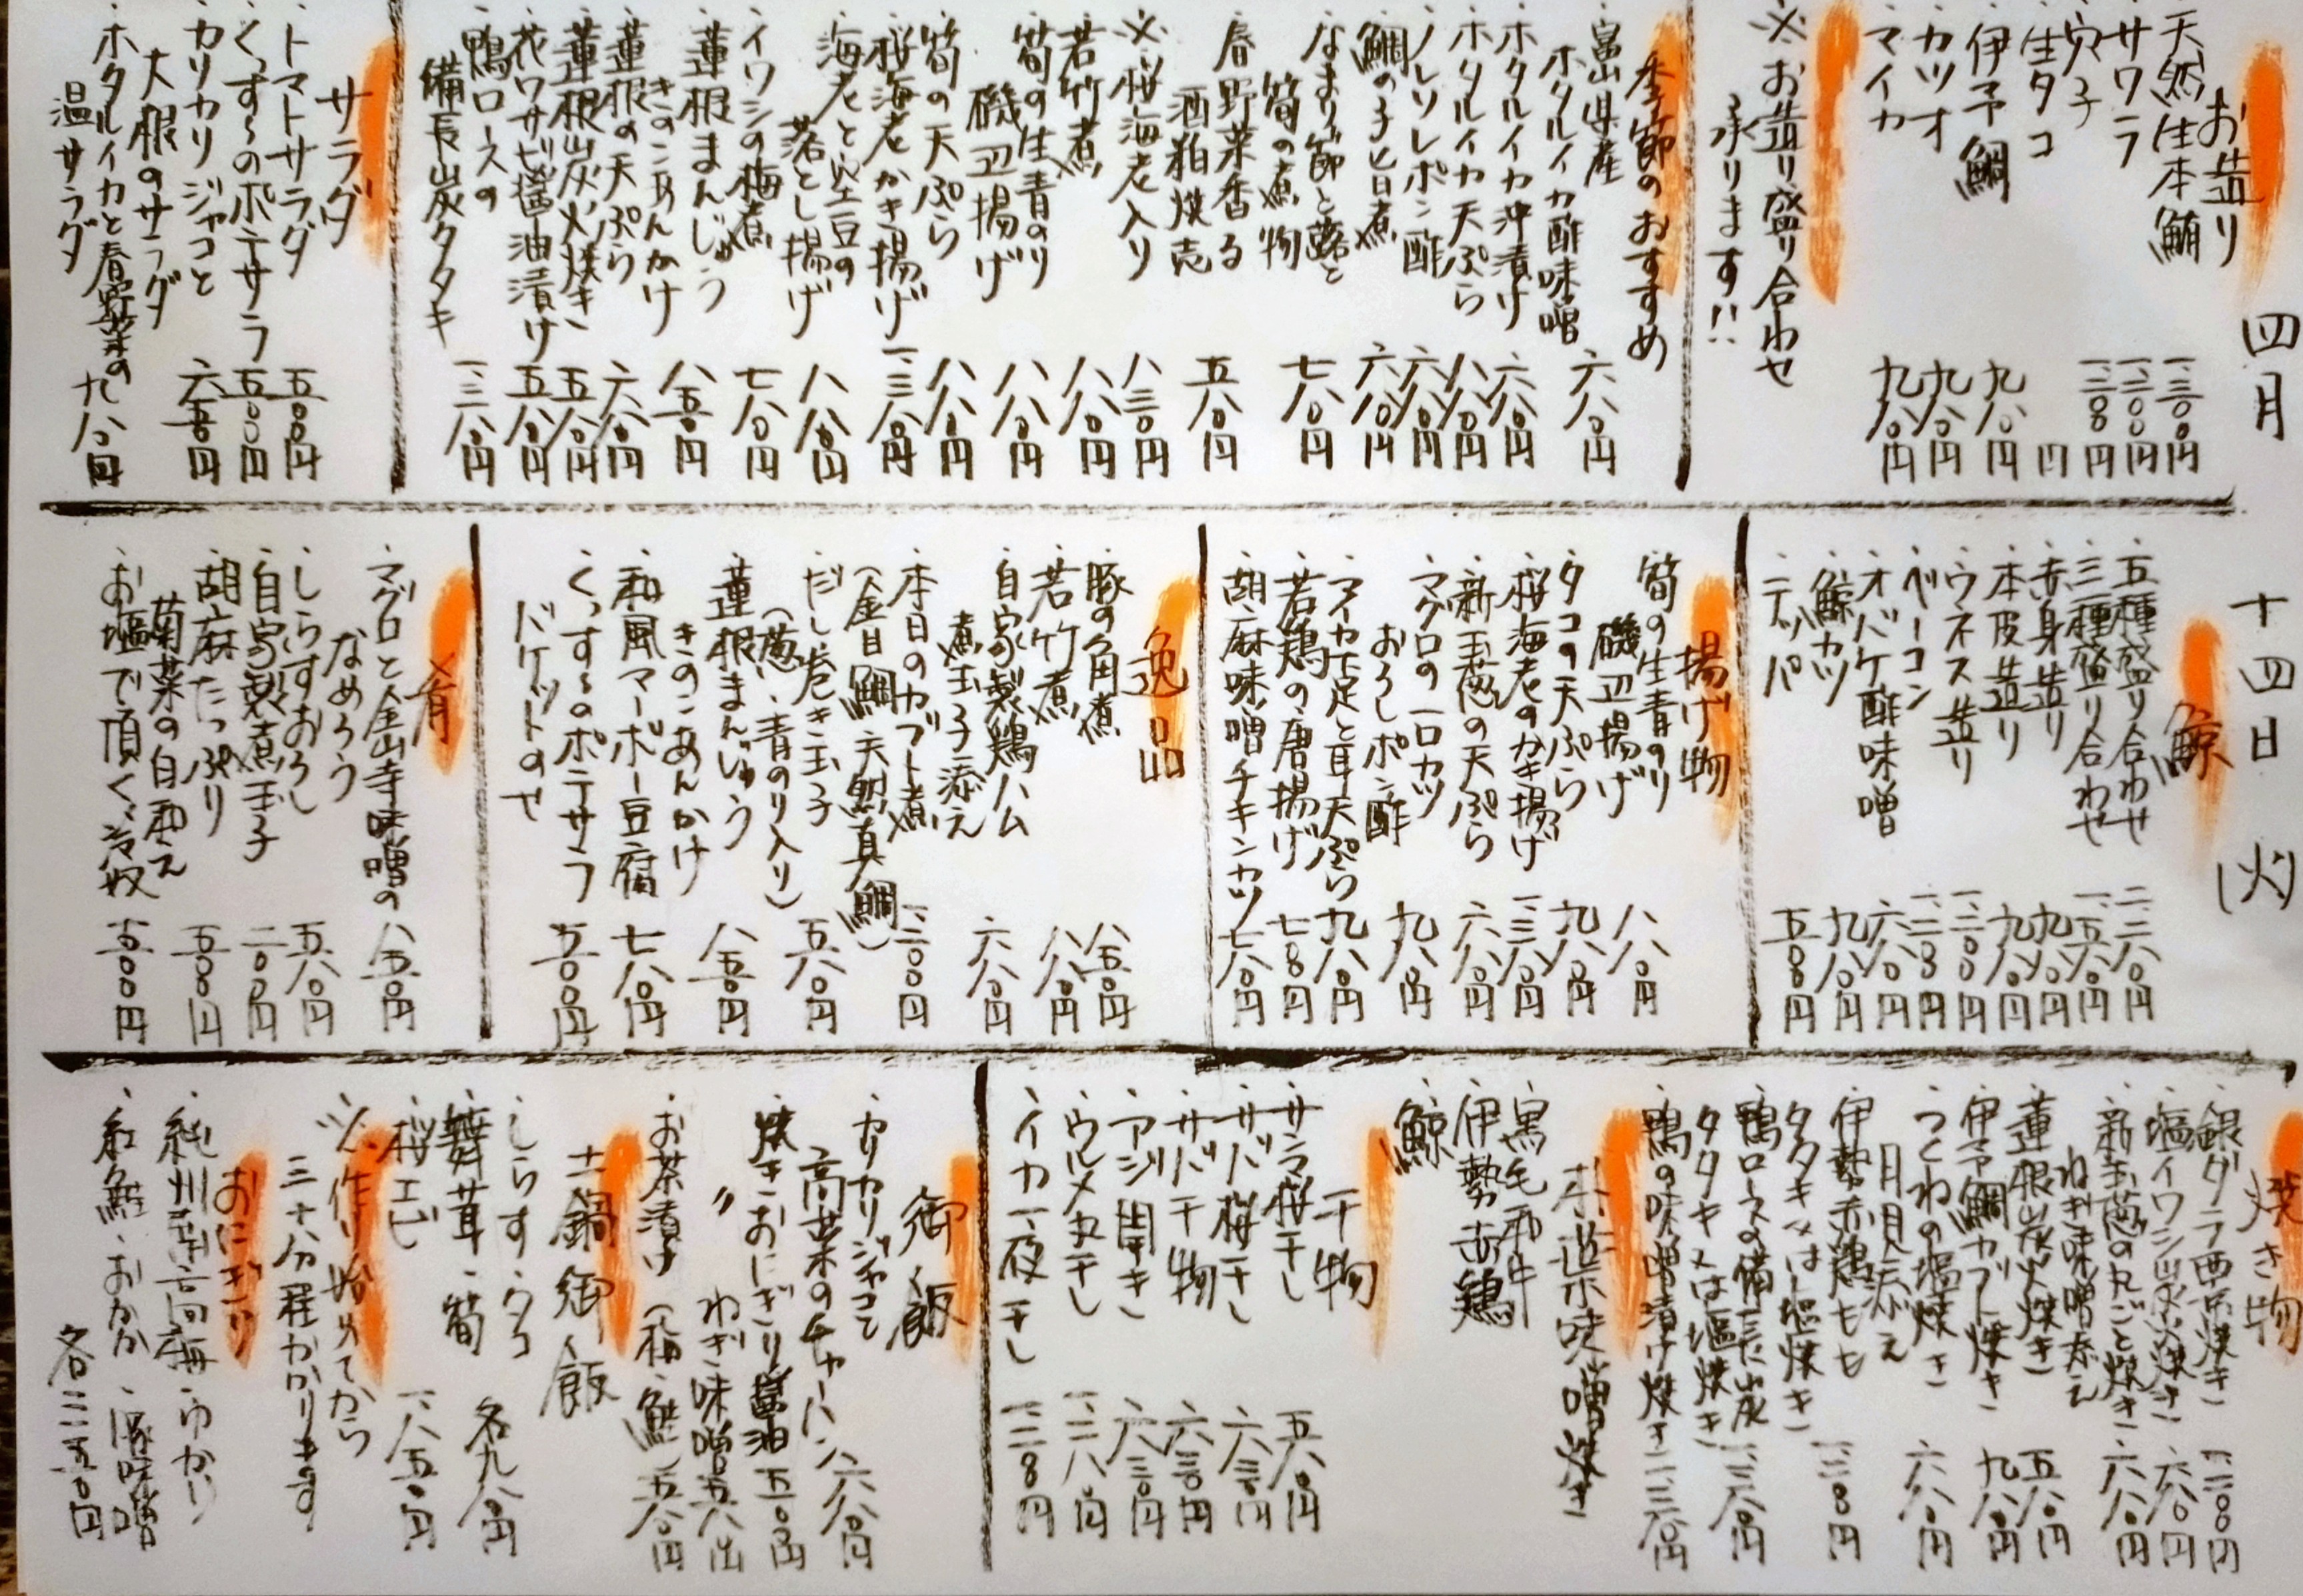 四月 十四日(火)
お造り
・天然生本鮪 一、二三〇円
・サワラ 一、二〇〇円
・穴子 一、二〇〇円
・生タコ 円
・伊予鯛 九八〇円
・カツオ 九八〇円
・マイカ 九八〇円
※お造り盛り合わせ
承ります!!
季節のおすすめ
・富山県産
ホタルイカ酢味噌 六八〇円
・ホタルイカ沖漬け 六八〇円
・ホタルイカ天ぷら 八八〇円
・ノレソレポン酢 六八〇円
・鯛の子旨煮 六八〇円
・なまり節と蕗と
筍の煮物 七八〇円
・春野菜香る
酒粕焼売 五八〇円
※桜海老入り 八三〇円
・若竹煮 八八〇円
・筍の生青のり
磯辺揚げ 八八〇円
・筍の天ぷら 八八〇円
・桜海老かき揚げ 一、三八〇円
・海老と空豆の
落とし揚げ 八八〇円
・イワシの梅煮 七八〇円
・蓮根まんじゅう
きのこあんかけ 八五〇円
・蓮根の天ぷら 六八〇円
・蓮根炭火焼き 五八〇円
・花ワサビ醤油漬け 五八〇円
・鴨ロースの
備長炭タタキ 一、三八〇円
サラダ
・トマトサラダ 五〇〇円
・くっするのポテサラ 五〇〇円
・カリカリジャコと
大根のサラダ 六五〇円
・ホタルイカと春野菜の
温サラダ 九八〇円
鯨
・五種盛り合わせ 二、二八〇円
・三種盛り合わせ 一、五八〇円
・赤身造り 九八〇円
・本皮造り 九八〇円
・ウネス造り 一、二〇〇円
・ベーコン 一、二八〇円
・オバケ酢味噌 六八〇円
・鯨カツ 九八〇円
・テッパ 五八〇円
揚げ物
・筍の生青のり
磯辺揚げ 八八〇円
・タコの天ぷら 九八〇円
・桜海老のかき揚げ 一、三八〇円
・新玉葱の天ぷら 六八〇円
・マグロの一口カツ
おろしポン酢 九八〇円
・マイカ足と耳天ぷら 九八〇円
・若鶏の唐揚げ 七八〇円
・胡麻味噌チキンカツ 七八〇円
逸品
・豚の角煮 八五〇円
・若竹煮 八八〇円
・自家製鶏ハム
煮玉子添え 六八〇円
・本日のカブト煮
(金目鯛・天然真鯛) 一、二〇〇円
・だし巻き玉子
(葱・青のり入り) 五八〇円
・蓮根まんじゅう
きのこあんかけ 八五〇円
・和風マーボー豆腐 七八〇円
・くっするのポテサラ
バケットのせ 五〇〇円
肴
・マグロと金山寺味噌の
なめろう 八五〇円
・しらすおろし 五八〇円
・自家製煮玉子 二〇〇円
・胡麻たっぷり
菊菜の白和え 五〇〇円
・お塩で頂く冷奴 五〇〇円
焼き物
・銀ダラ西京焼き 一、二〇〇円
・塩イワシ炭火焼き 六八〇円
・新玉葱の丸ごと焼き
ねぎ味噌添え 六八〇円
・蓮根炭火焼き 五八〇円
・伊予鯛カブト焼き 九八〇円
・つくねの塩焼き
月見添え 六八〇円
・伊勢赤鶏もも
タタキ又は塩焼き 一、三〇〇円
・鴨ロースの備長炭
タタキ又は塩焼き 一、三八〇円
・鴨の味噌漬け焼き 一、三八〇円
朴葉味噌焼き
・黒毛和牛
・伊勢赤鶏
・鯨
干物
・サンマ桜干し 五八〇円
・サバ桜干し 六三〇円
・サバ干物 六三〇円
・アジ開き 六三〇円
・ウルメ丸干し 一、二八〇円
・イカ一夜干し 一、二八〇円
御飯
・カリカリジャコと
高菜のチャーハン 六八〇円
・焼きおにぎり醤油 五〇〇円
〃 ねぎ味噌 五八〇円
・お茶漬け(梅・鮭) 五八〇円
土鍋御飯
・しらす・タコ
・舞茸・筍 各九八〇円
・桜エビ 一、八五〇円
※作り始めてから
三十分程かかります
おにぎり
・紀州南高梅・ゆかり
・紅鮭・おかか・豚味噌
各二五〇円